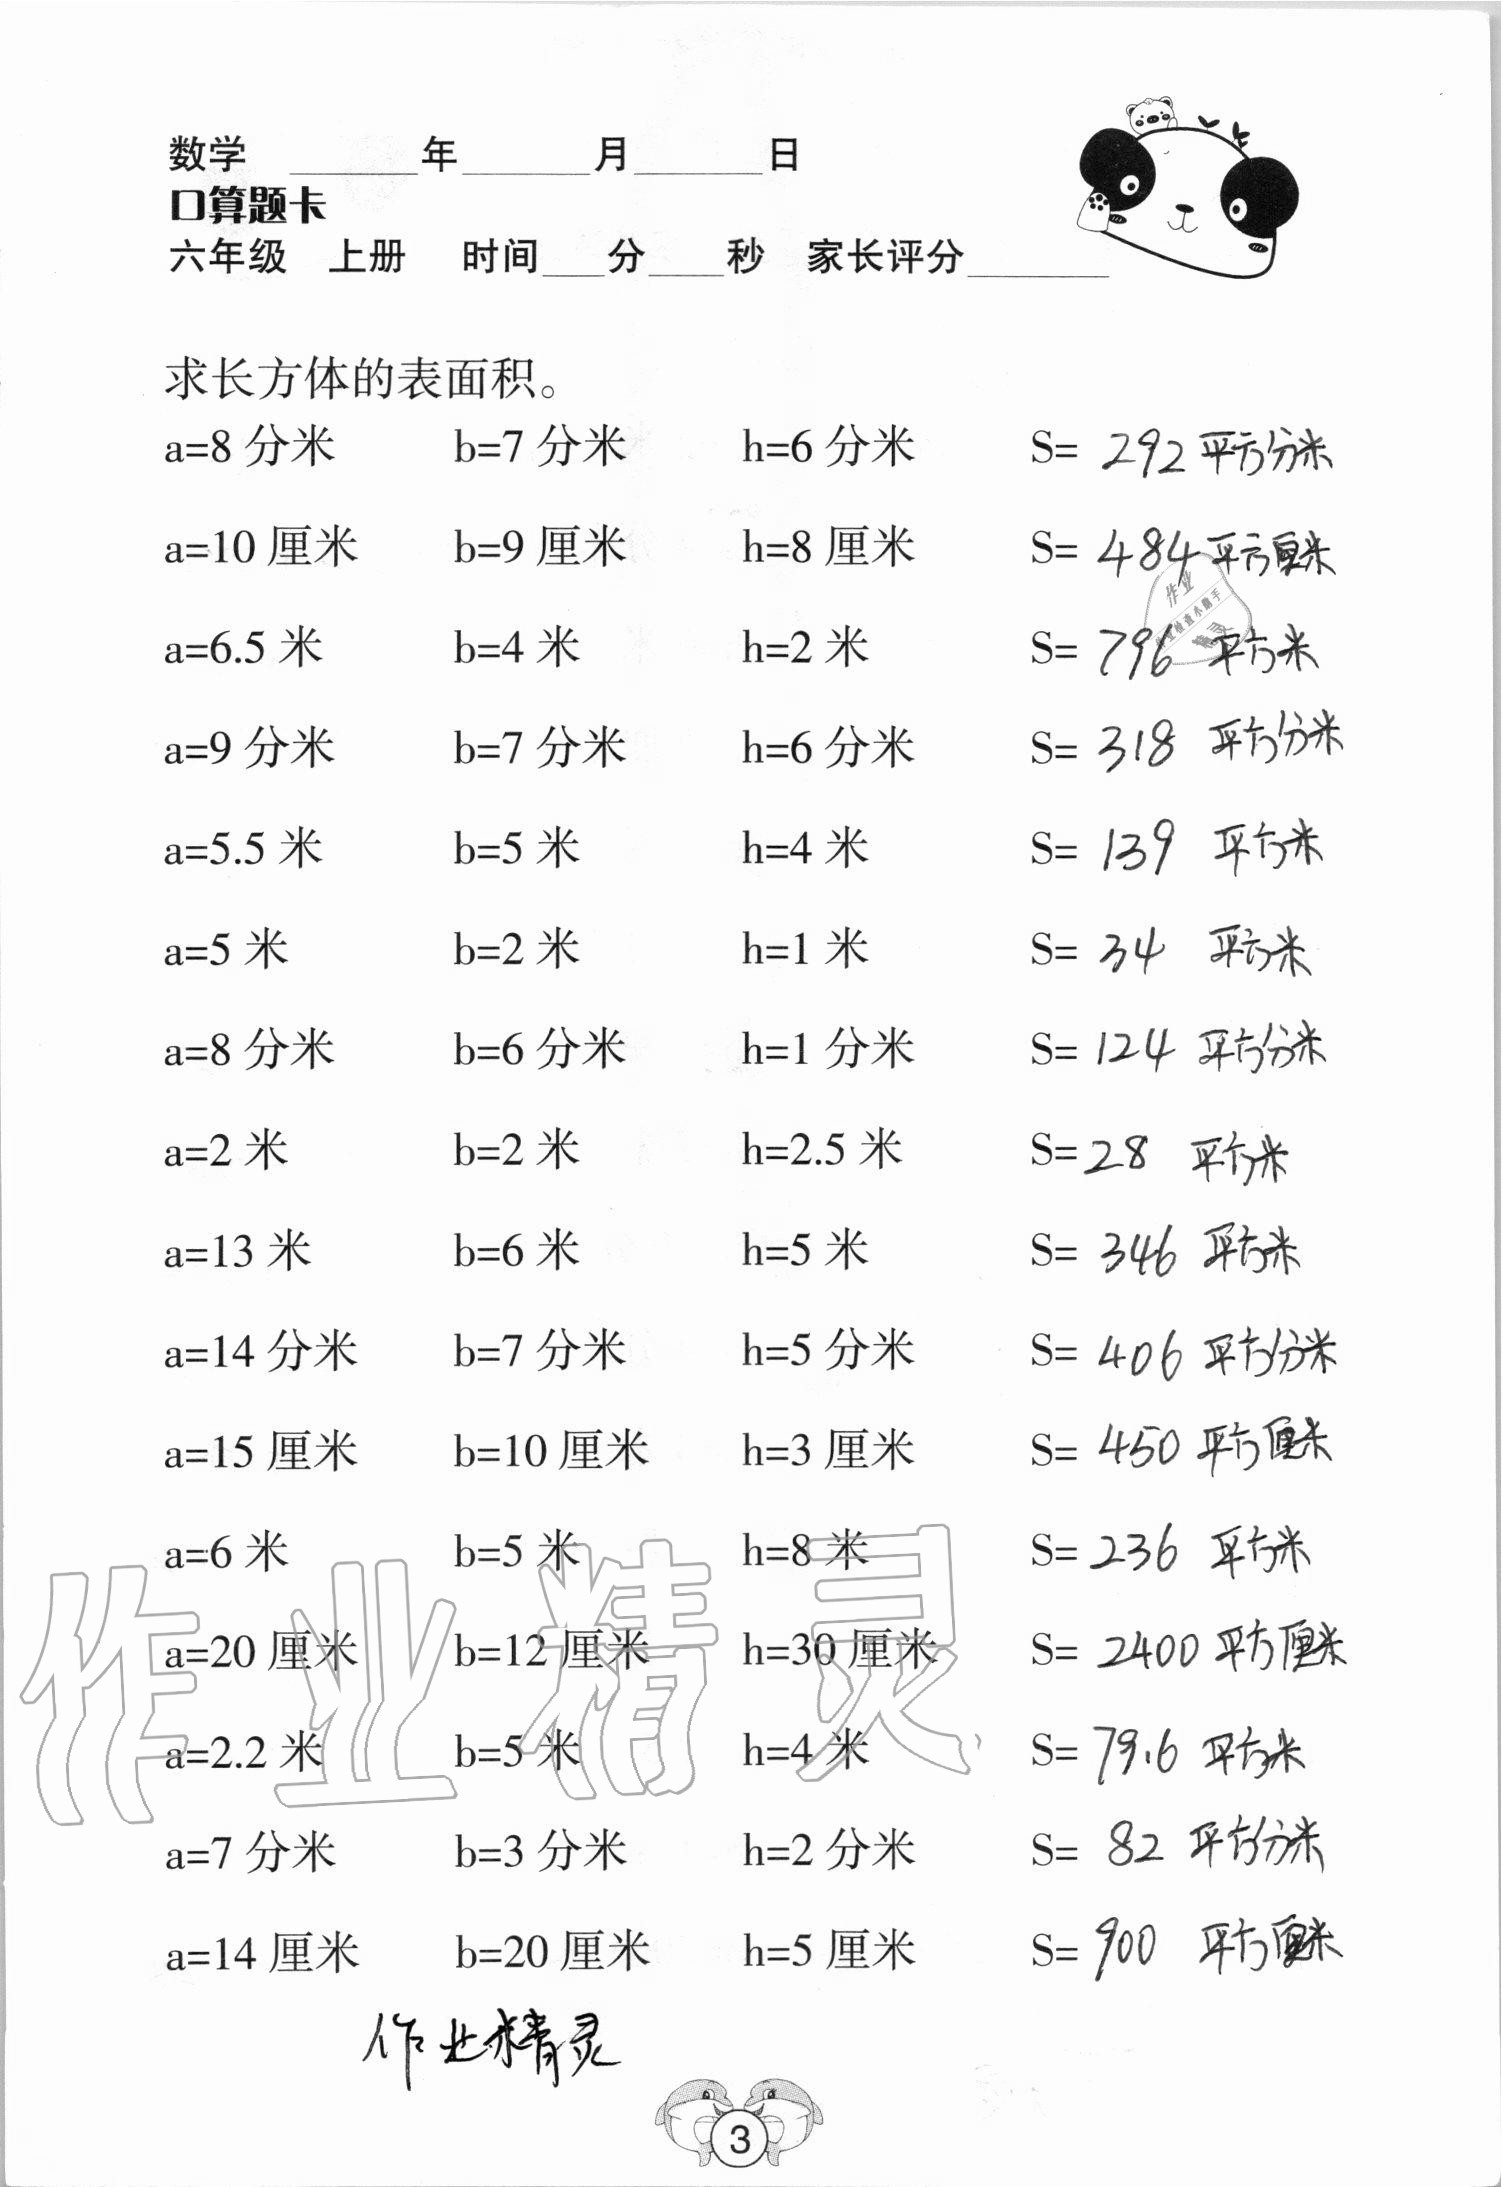 数学 ____年____月____日
口算题卡
六年级 上册 时间___分___秒 家长评分______
求长方体的表面积。
a=8 分米 b=7 分米 h=6 分米 S= 292 平方分米
a=10 厘米 b=9 厘米 h=8 厘米 S= 484 平方厘米
作业
作业检查小助手
精灵
a=6.5 米 b=4 米 h=2 米 S= 796 平方米
a=9 分米 b=7 分米 h=6 分米 S= 318 平方分米
a=5.5 米 b=5 米 h=4 米 S= 139 平方米
a=5 米 b=2 米 h=1 米 S= 34 平方米
a=8 分米 b=6 分米 h=1 分米 S= 124 平方分米
a=2 米 b=2 米 h=2.5 米 S= 28 平方米
a=13 米 b=6 米 h=5 米 S= 346 平方米
a=14 分米 b=7 分米 h=5 分米 S= 406 平方分米
a=15 厘米 b=10 厘米 h=3 厘米 S= 450 平方厘米
a=6 米 b=5 米 h=8 米 S= 236 平方米
作业精灵
a=20 厘米 b=12 厘米 h=30 厘米 S= 2400 平方厘米
a=2.2 米 b=5 米 h=4 米 S= 79.6 平方米
a=7 分米 b=3 分米 h=2 分米 S= 82 平方分米
a=14 厘米 b=20 厘米 h=5 厘米 S= 900 平方厘米
作业精灵
3